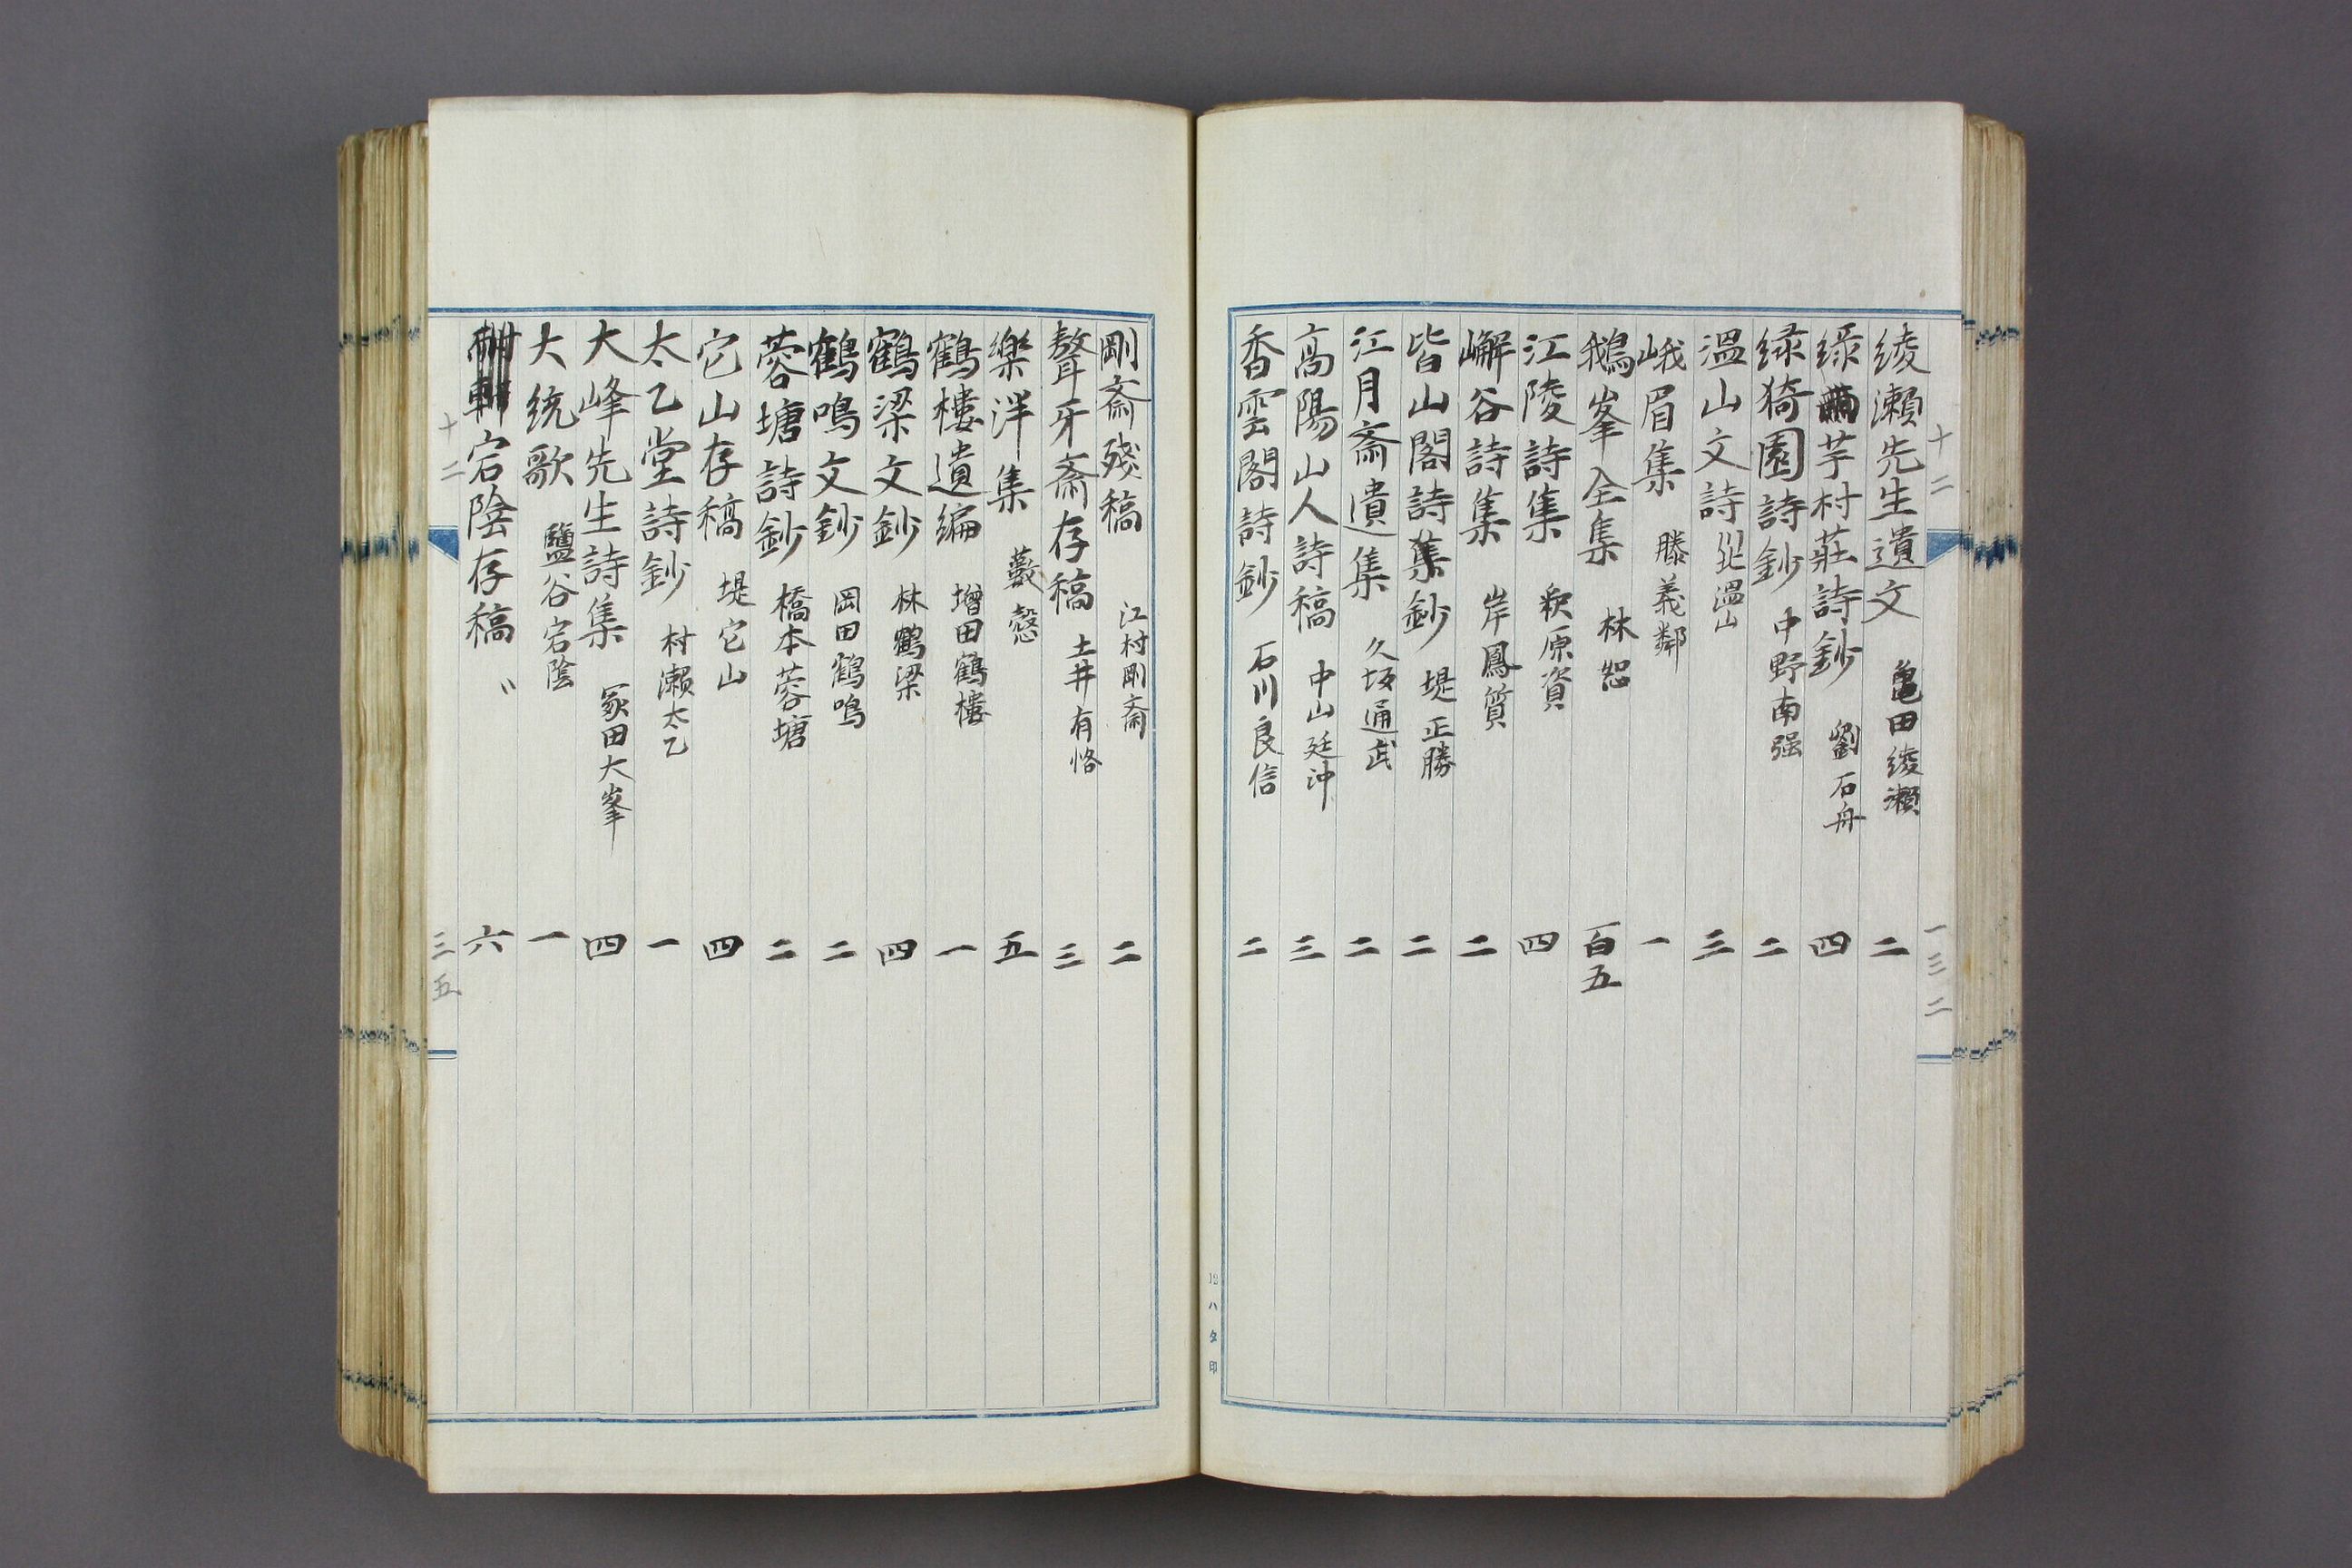 十二
一三二
綾瀬先生遺文 亀田綾瀬 二
緑芋村莊詩鈔 劉石舟 四
緑猗園詩鈔 中野南强 二
溫山文詩 北溫山 三
峨眉集 滕義鄰 一
鵝峯全集 林恕 百五
江陵詩集 釈原資 四
嶰谷詩集 岸鳳質 二
皆山閣詩集鈔 堤正勝 二
江月斎遺集 久坂通武 二
高陽山人詩稿 中山廷沖 三
香雲閣詩鈔 石川良信 二
剛斎殘稿 江村剛斎 二
聱牙斎存稿 土井有恪 三
樂泮集 藪愨 五
鶴樓遺編 增田鶴樓 一
鶴梁文鈔 林鶴梁 四
鶴鳴文鈔 岡田鶴鳴 二
蓉塘詩鈔 橋本蓉塘 二
它山存稿 堤它山 四
太乙堂詩鈔 村瀬太乙 一
大峰先生詩集 冢田大峯 四
大統歌 鹽谷宕陰 一
宕陰存稿 〃 六
十二
三五